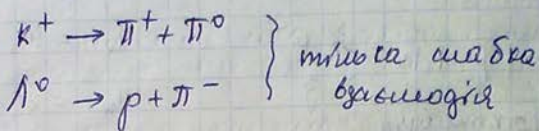 K⁺ → π⁺ + π⁰
Λ⁰ → p + π⁻
тільки слабка
взаємодія